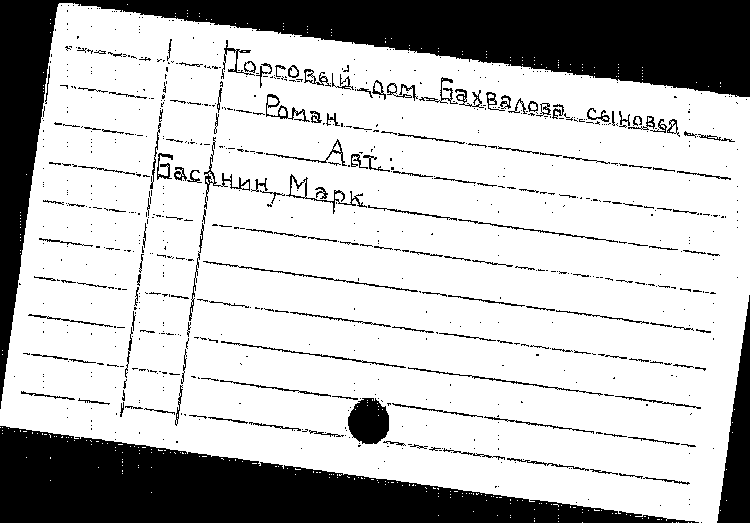 Торговый дом Бахвалова сыновья
Роман.
Авт.:
Басанин, Марк